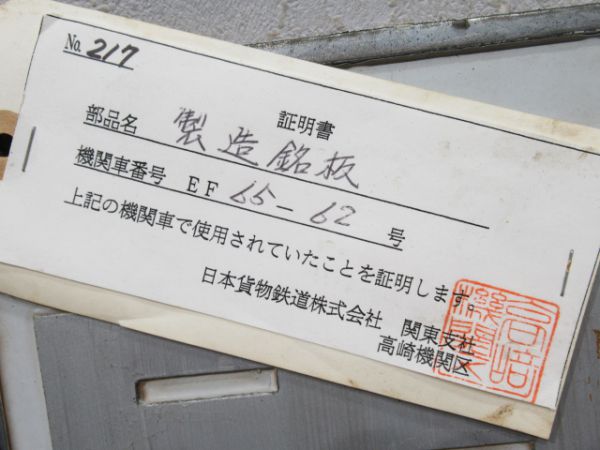 No. 217
証明書
部品名 製造銘板
機関車番号 EF 65-62 号
上記の機関車で使用されていたことを証明します。
日本貨物鉄道株式会社 関東支社
高崎機関区
高崎機関区